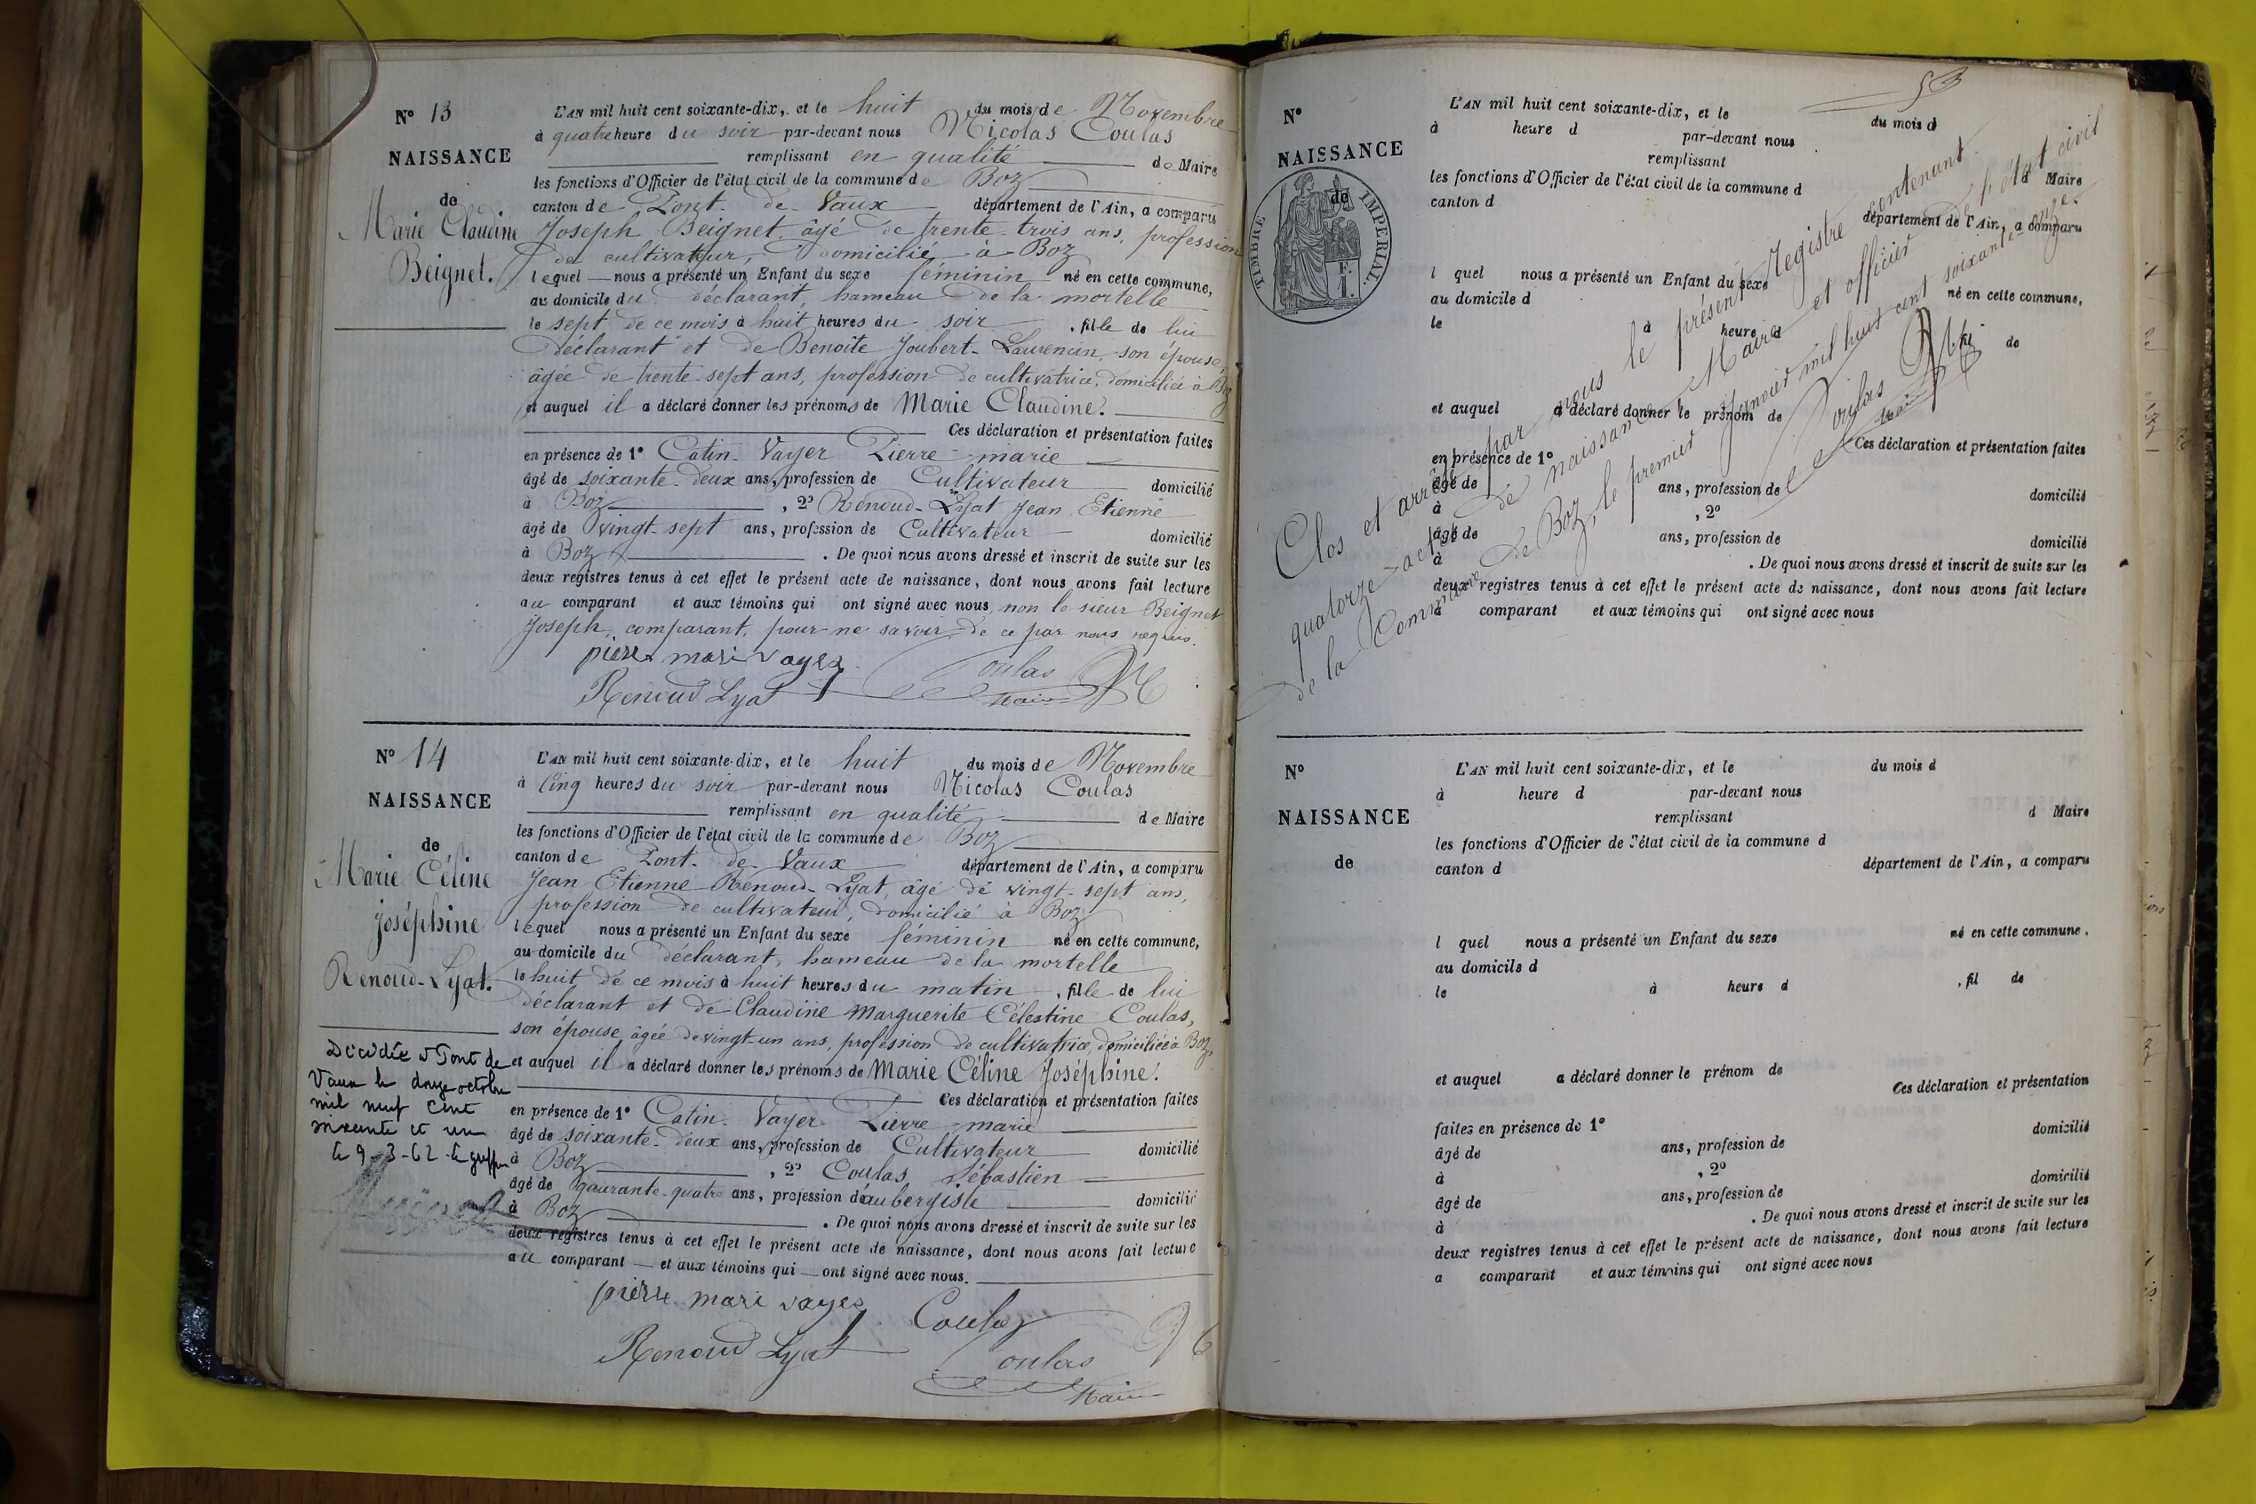 N° 13
NAISSANCE
de
Marie Claudine
Beignet.
L'AN mil huit cent soixante-dix, et le huit du mois de Novembre
à quatre heure du soir par-devant nous Nicolas Coulas
remplissant en qualité de Maire
les fonctions d'Officier de l'état civil de la commune de Boz
canton de Pont-de-Vaux département de l'Ain, a comparu
Joseph Beignet, âgé de trente-trois ans, profession
de cultivateur, domicilié à Boz
lequel nous a présenté un Enfant du sexe féminin né en cette commune,
au domicile du déclarant, hameau de la mortelle
le sept de ce mois à huit heures du soir, fille de lui
déclarant et de Benoîte Joubert-Laurencin, son épouse,
âgée de trente-sept ans, profession de cultivatrice, domiciliée à Boz
et auquel il a déclaré donner les prénoms de Marie Claudine.
Ces déclaration et présentation faites
en présence de 1° Catin-Vayer Pierre-marie
âgé de soixante-deux ans, profession de Cultivateur domicilié
à Boz, 2° Renoud-Lyat Jean Etienne
âgé de vingt-sept ans, profession de Cultivateur domicilié
à Boz. De quoi nous avons dressé et inscrit de suite sur les
deux registres tenus à cet effet le présent acte de naissance, dont nous avons fait lecture
au comparant et aux témoins qui ont signé avec nous, non le sieur Beignet
Joseph, comparant, pour ne savoir de ce par nous requis.
pierre mari vayer
Coulas
Renoud Lyat
Maire
N° 14
NAISSANCE
de
Marie Céline
Joséphine
Renoud-Lyat.
Décédée à Pont de
Vaux le douze octobre
mil neuf cent
soixante et un
le 9-3-62 le greffier
L'AN mil huit cent soixante-dix, et le huit du mois de Novembre
à Cinq heures du soir par-devant nous Nicolas Coulas
remplissant en qualité de Maire
les fonctions d'Officier de l'état civil de la commune de Boz
canton de Pont-de-Vaux département de l'Ain, a comparu
Jean Etienne Renoud-Lyat, âgé de vingt-sept ans,
profession de cultivateur, domicilié à Boz
lequel nous a présenté un Enfant du sexe féminin né en cette commune,
au domicile du déclarant, hameau de la mortelle
le huit de ce mois à huit heures du matin, fille de lui
déclarant et de Claudine Marguerite Célestine Coulas,
son épouse, âgée de vingt-un ans, profession de cultivatrice, domiciliée à Boz,
et auquel il a déclaré donner les prénoms de Marie Céline Joséphine.
Ces déclaration et présentation faites
en présence de 1° Catin-Vayer Pierre-marie
âgé de soixante-deux ans, profession de Cultivateur domicilié
à Boz, 2° Coulas Sébastien
âgé de quarante-quatre ans, profession d'aubergiste domicilié
à Boz. De quoi nous avons dressé et inscrit de suite sur les
deux registres tenus à cet effet le présent acte de naissance, dont nous avons fait lecture
au comparant et aux témoins qui ont signé avec nous.
pierre mari vayer
Coulas
Renoud Lyat
Coulas
Maire
53
N°
NAISSANCE
de
TIMBRE IMPERIAL.
1 F.
L'AN mil huit cent soixante-dix, et le du mois d
à heure d par-devant nous
remplissant d Maire
les fonctions d'Officier de l'état civil de la commune d
canton d département de l'Ain, a comparu
l quel nous a présenté un Enfant du sexe né en cette commune,
au domicile d
le à heure d , fil de
et auquel a déclaré donner le prénom de
Ces déclaration et présentation faites
en présence de 1°
âgé de ans, profession de domicilié
à , 2°
âgé de ans, profession de domicilié
à . De quoi nous avons dressé et inscrit de suite sur les
deux registres tenus à cet effet le présent acte de naissance, dont nous avons fait lecture
a comparant et aux témoins qui ont signé avec nous
Clos et arrêté par nous le présent Registre contenant
quatorze actes de naissance Maire et officier de l'état civil
de la Commune de Boz, le premier Janvier mil huit cent soixante-onze.
Coulas
Maire
N°
NAISSANCE
de
L'AN mil huit cent soixante-dix, et le du mois d
à heure d par-devant nous
remplissant d Maire
les fonctions d'Officier de l'état civil de la commune d
canton d département de l'Ain, a comparu
l quel nous a présenté un Enfant du sexe né en cette commune,
au domicile d
le à heure d , fil de
et auquel a déclaré donner le prénom de
Ces déclaration et présentation
faites en présence de 1°
âgé de ans, profession de domicilié
à , 2°
âgé de ans, profession de domicilié
à . De quoi nous avons dressé et inscrit de suite sur les
deux registres tenus à cet effet le présent acte de naissance, dont nous avons fait lecture
a comparant et aux témoins qui ont signé avec nous